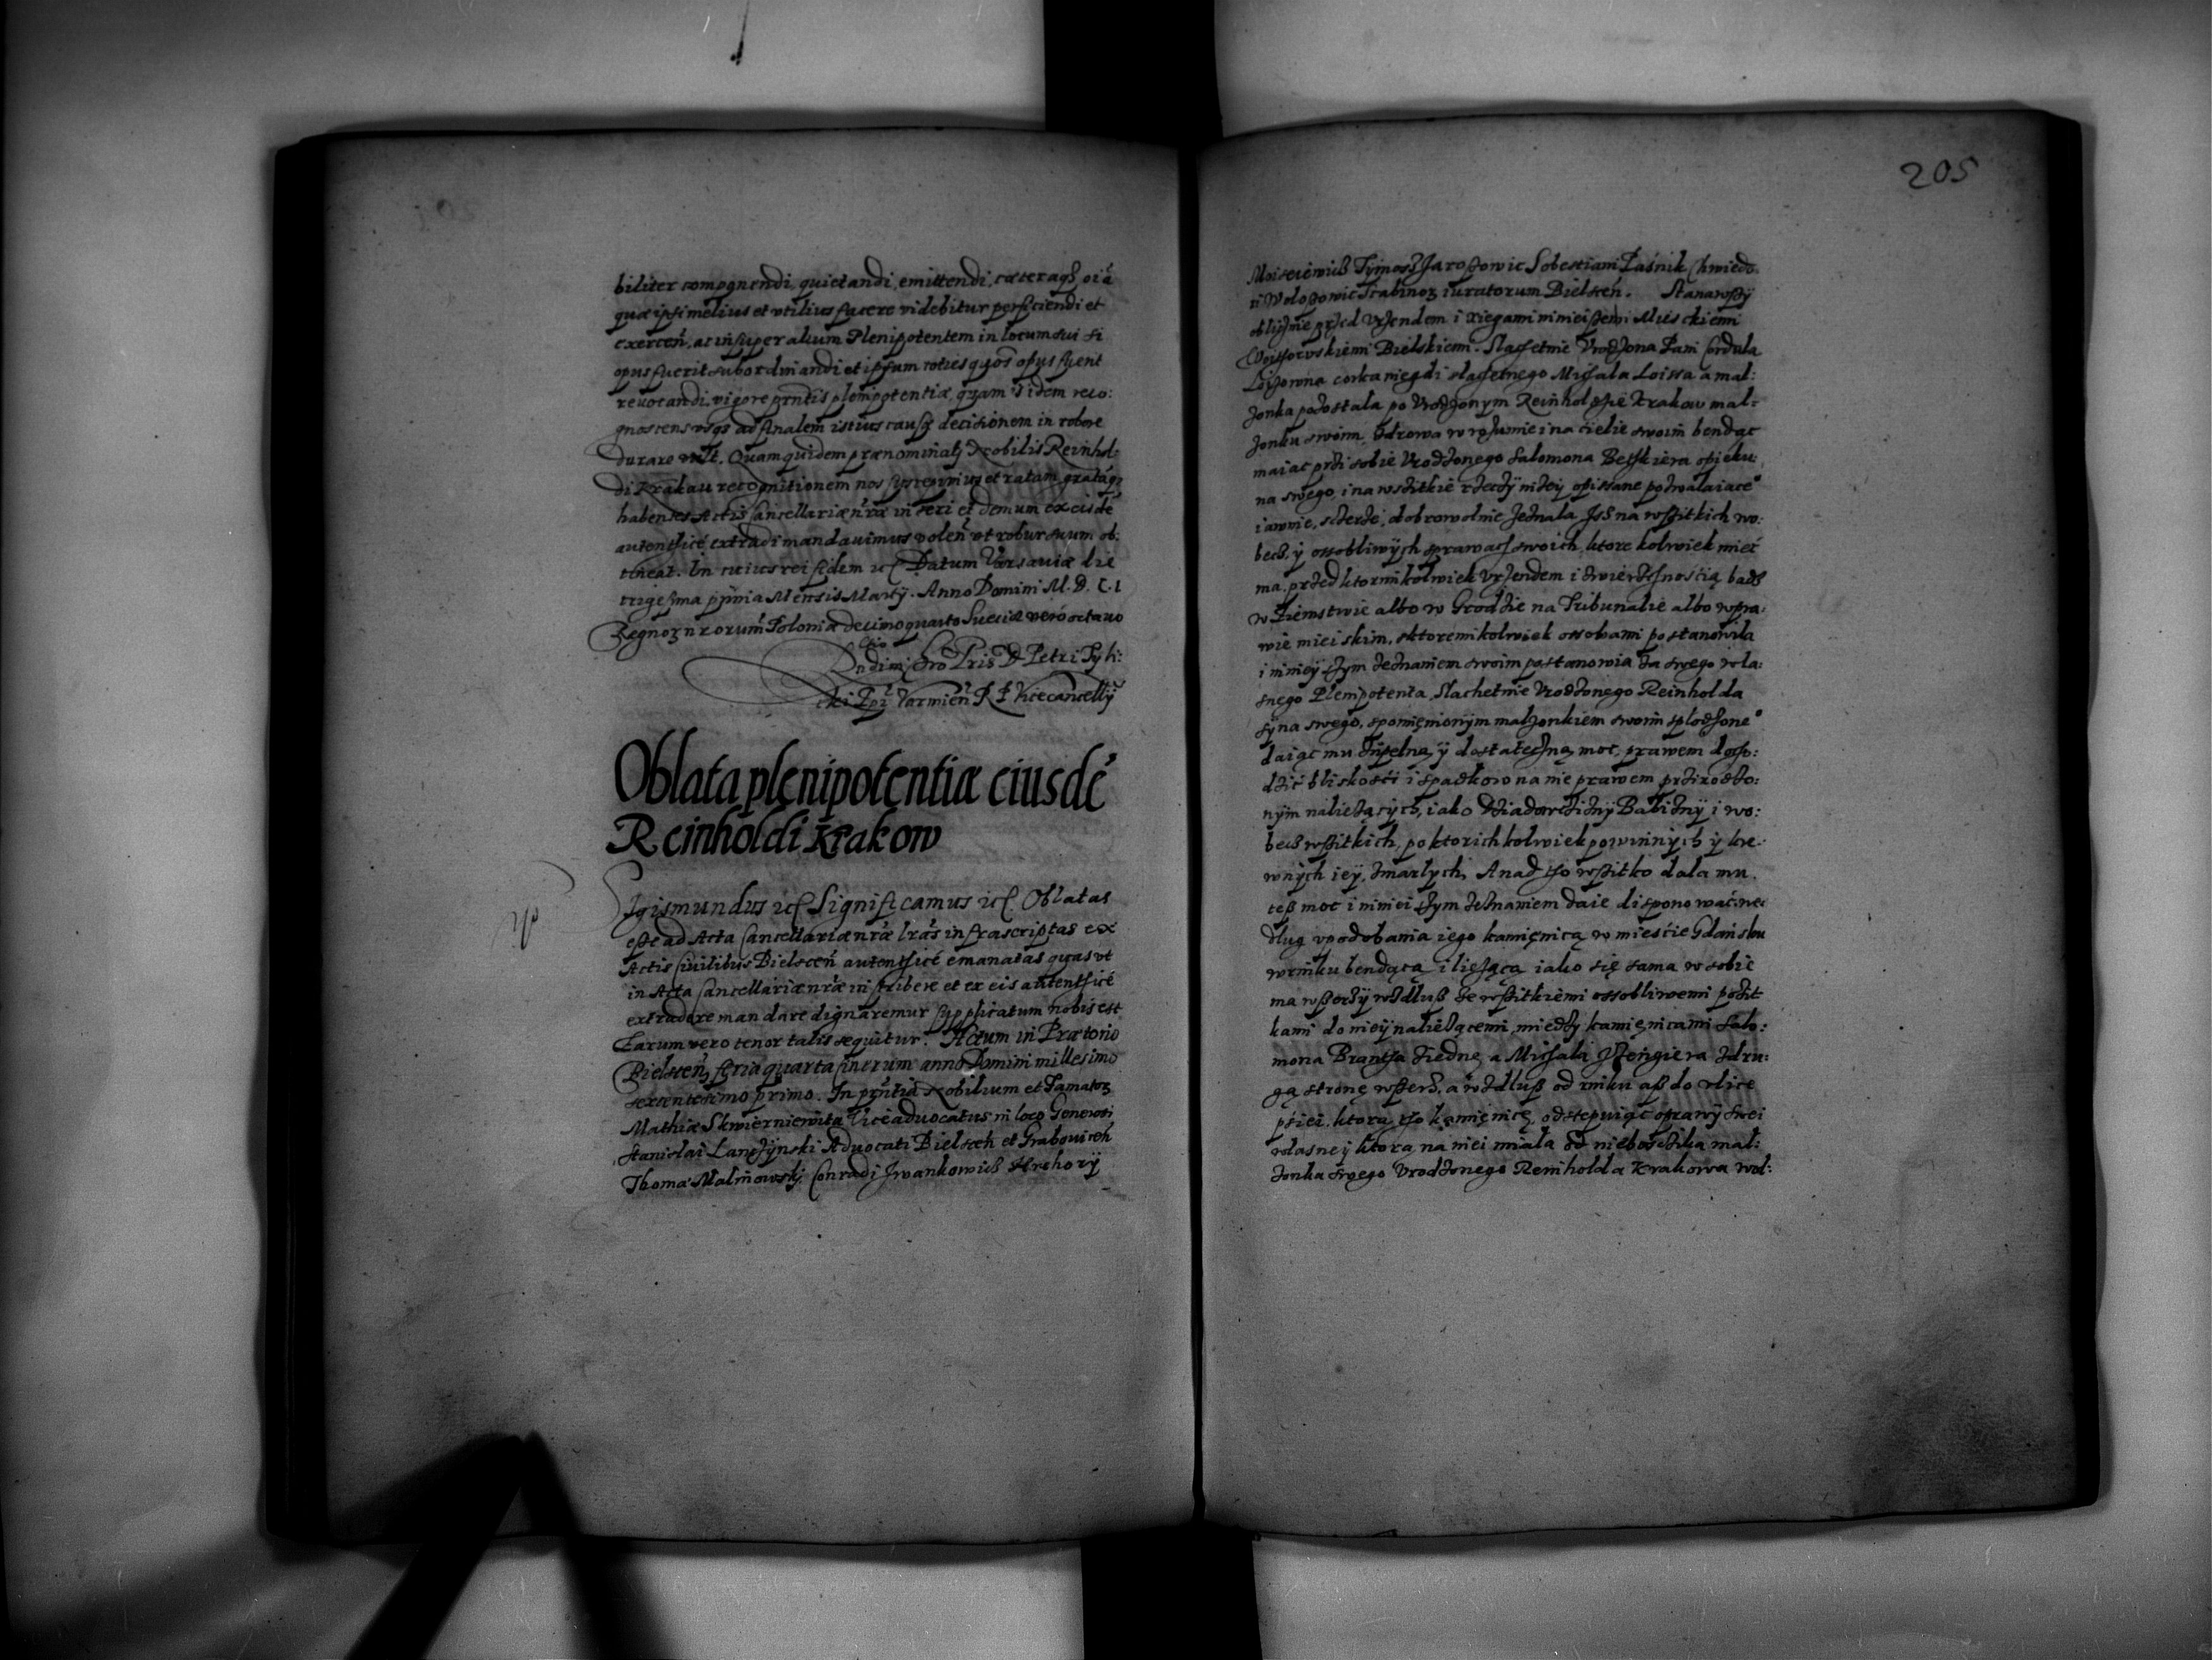 biliter componendi, quietandi, emittendi, cæteraqȝ oia
quæ ipsi melius et vtilius facere videbitur perficiendi et
exercen. ac insuper alium Plenipotentem in locum sui si
opus fuerit subordinandi et ipsum toties quos opus fuerit
revocandi, vigore prntis plenipotentiæ, quam idem reco:
gnoscens vsqs ad finalem istius causæ decisionem in robore
durare vult. Quam quidem prænominati Nobilis Reinhol:
di Krakau recognitionem nos suscepimus et ratam gratāqȝ
habentes Actis Cancellariæ nræ inseri et demum ex eisdē
autenthicé extradi mandavimus volen vt robur suum ob:
tineat. In cuius rei fidem ucſ Datum Varsaviæ die
trigesima prima Mensis Martij. Anno Domini M. D. C. I
Regnoȝ nrorum Poloniæ decimo quarto Sueciæ vero octavo
Petri Tyli:
cki Epi Varmien R P Vicecancellÿ
Oblata plenipotentiæ eiusdē
Reinholdi Krakow
Sigismundus ucſ Significamus ucſ. Oblatas
esse ad Acta Cancellariæ nræ lras infrascriptas ex
Actis Civilibus Bielscen autenthicé emanatas quas vt
in Acta Cancellariæ nræ inscribere et ex eis autenthicé
extradere mandare dignaremur supplicatum nobis est
Earum vero tenor talis sequitur. Actum in Prætorio
Bielscen feria quarta Cinerum anno Domini millesimo
sexcentesimo primo. In prntia Nobilium et Famatoȝ
Mathiæ Skwierniewita Viceadvocatus in loco Generosi
Stanislai Advocati Bielscen et
Thoma Malinowskj Conradi Jwankowicz Hrehorÿ
205
Jaroszowic Sobestiani Paśnik Chwiedo:
ri Wołoszowic Scabinoȝ iuratorum Bielscen. Stanawszÿ
obliznie przed Vrzendem i xiegami ninieiszemi Mieisckiemi
Woitowskiemi Bielskiemi. Slachetnie Vrodzona Pani Cordula
Loizowna corka niegdi slachetnego Michala Loissa a mal:
zonka pozostala po Vrodzonym Reinholdzie Krakow mal:
zonku swoim, zdrowa w rozumie i na ciele swoim bendąc
maiac przi sobie Vrodzonego Salomona opieku:
na swego, i na wszitkie rzeczÿ nizei opissane pozwalaiace°
iawnie, sczerze, dobrowolnie zeznala Jsz na wszitkich wo:
becz ÿ ossobliwÿch sprawach swoich, ktore kolwiek mieć
ma, przed ktorimkolwiek Vrzendem i zwierzchnością badz
w Ziemstwie albo w Grodzie na Tribunalie albo w pra:
wie mieiskim, sktoremikolwiek ossobami postanowila
i ninieÿszym zeznaniem swoim postanowia za swego wla:
snego Plenipotenta, Slachetnie Vrodzonego Reinholda
sÿna swego, spomięnionÿm malzonkiem swoim splodzone°
daiąc mu zupelną ÿ dostateczną moc, prawem docho:
dzić bliskości i spadkow na nie prawem przirodzo:
nÿm należących, iako Dziadowcziznÿ Babiznÿ i wo:
becz wszitkich, po ktorichkolwiek powinnÿch ÿ kre:
wnÿch ieÿ, zmarlych, A nad to wszitko dala mu
tesz moc i ninieiszym zeznaniem daie disponować we:
dlug vpodobania iego kamięnicą w mieście Gdańsku
w rinku bendącą i lieżącą iako się sama w sobie
ma wszerzÿ wzdlusz ze wszitkiemi ossobliwemi pozit:
kami do nieÿ nalieżącemi, miedzÿ kamięnicami Salo:
mona Brantha ziednę, a Michali z dru:
gą stronę wszerz, a wzdlusz od rinku asz do vlice
psiei, ktorą to kamięnicę, odstepuiąc oprawÿ swei
wlasneÿ ktorą na niei miala od nieboszczika mal:
zonka swego Vrodzonego Reinholda Krakowa wol: